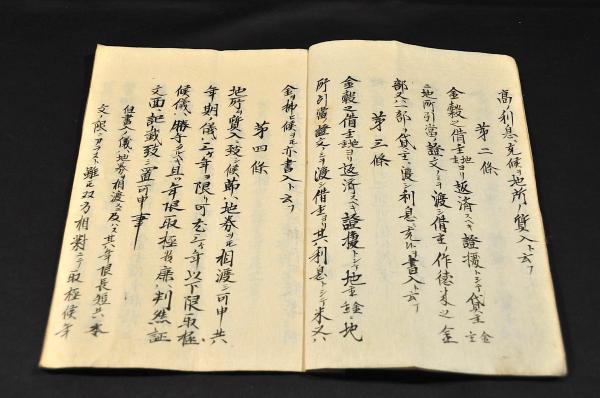 高ノ利息ニ充候ヲ地所ノ質入ト云フ
第二條
金穀之借主ヨリ返済スヘキ證據トシテ貸主金主
ニ地所引當證文ノミヲ渡シ借主ノ作徳米之全
部又ハ一部ヲ貸主ニ渡シ利息ニ充ルヲ書入ト云フ
第三條
金穀之借主ヨリ返済スヘキ證據トシテ地主金主ニ地
所引當證文ノミヲ渡シ借主ヨリ其利息トシテ米又ハ
金ヲ拂ヒ候ヲモ亦書入ト云フ
第四條
地所ヲ質入ニ致シ候節ハ地券ヲモ相渡シ可申其
年期儀ハ三ケ年ヲ限リ可充三ケ年以下限取極
候儀ハ勝手タルヘク且ツ年限取極省廉ハ判然証
文面ニ記載致シ置可申事
但書入ノ儀ハ地券ヲ相渡スニ及ハス其年限長短共本
文ノ限ニアラスト雖モ双方相對ニテ取極候年